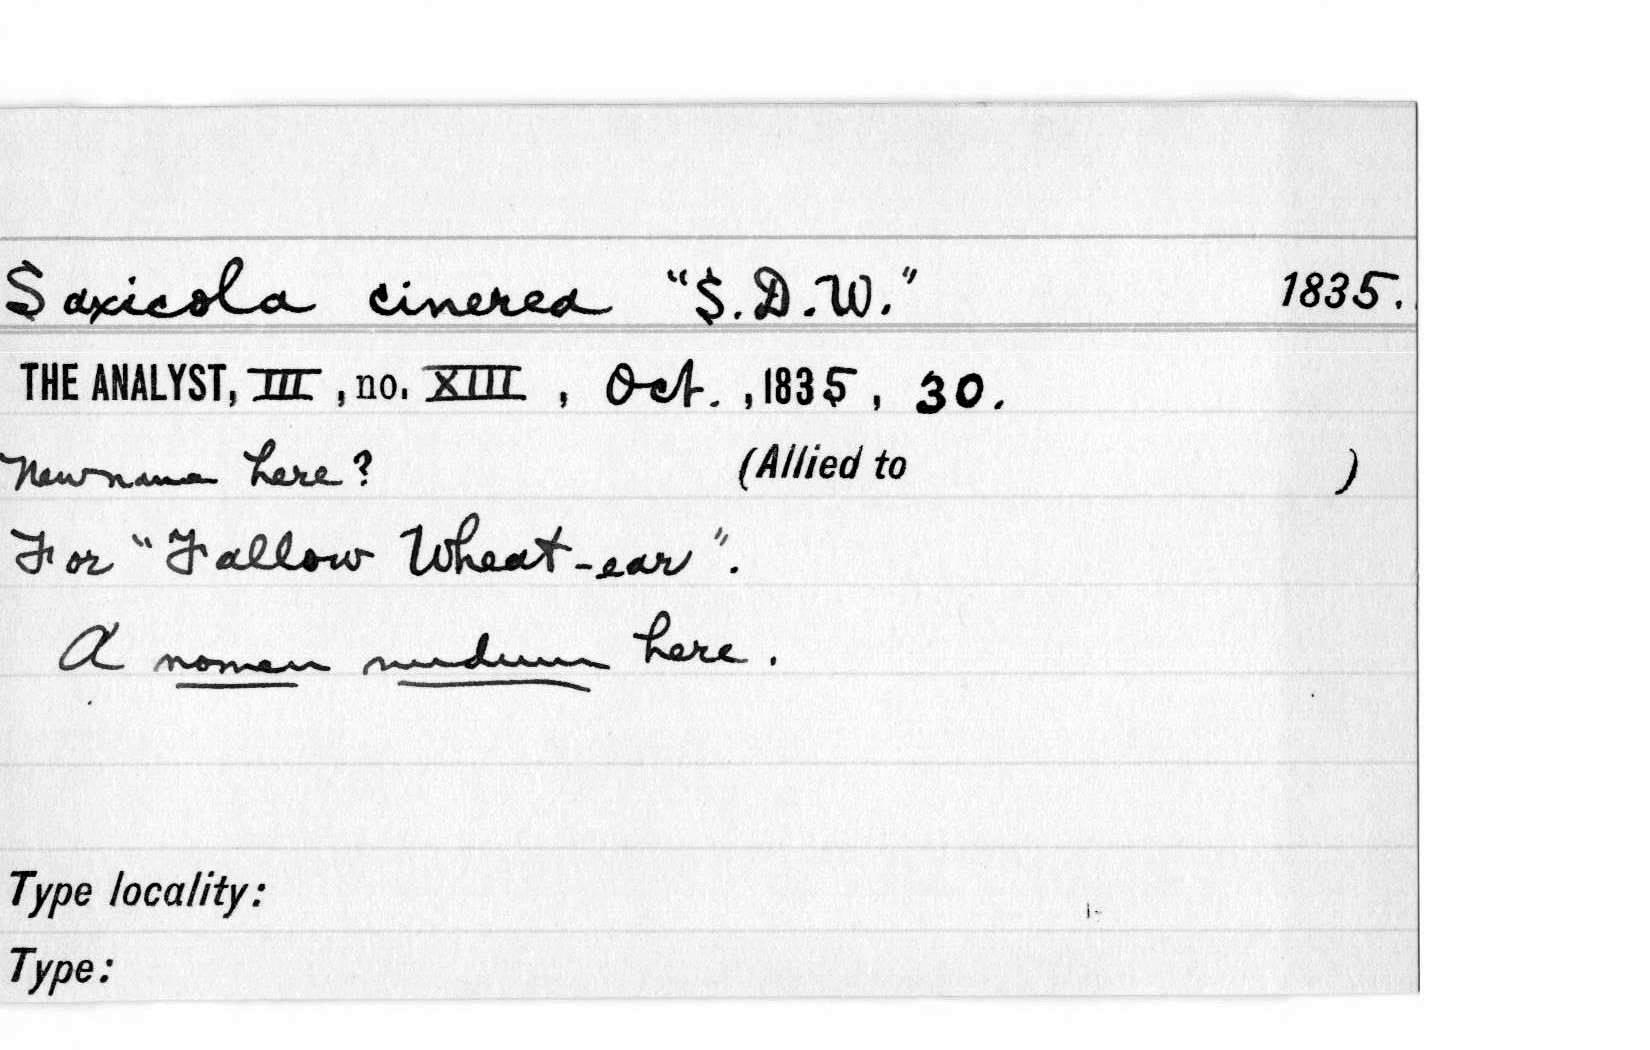 Saxicola cinerea "S.D.W." 1835.
THE ANALYST, III, no. XIII, Oct., 1835, 30.
New name here? (Allied to )
For "Fallow Wheat-ear".
A nomen nudum here.
Type locality:
Type: